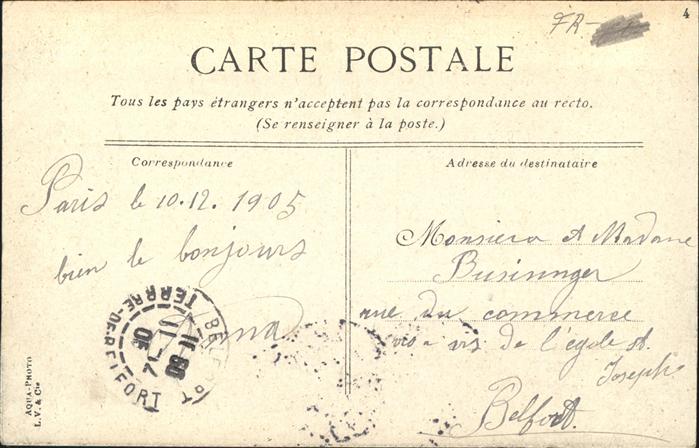 4
FR-
CARTE POSTALE
Tous les pays étrangers n'acceptent pas la correspondance au recto.
(Se renseigner à la poste.)
Correspondance
Paris le 10.12. 1905
bien le bonjours
Adresse du destinataire
Monsieur et Madame
Businnger
rue du commerce
vis-a vis de l'égele St.
Joseph
Belfort.
TERRE-DE-BELFORT
AQUA-PHOTO
L.V. & Cie